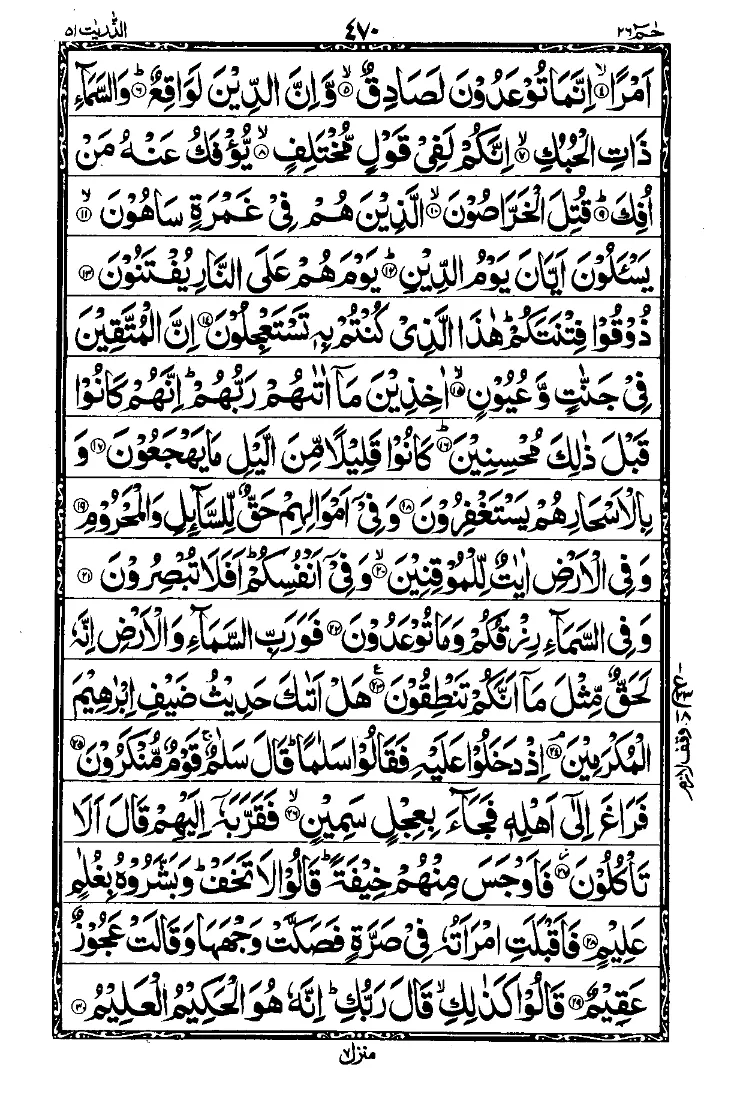 حٰمٓ ٢٦ ٤٧٠ الذّٰرِیٰت ٥١
اَمْرًا ۙ﴿۴﴾ اِنَّمَا تُوْعَدُوْنَ لَصَادِقٌ ۙ﴿۵﴾ وَّاِنَّ الدِّیْنَ لَوَاقِعٌ ؕ﴿۶﴾ وَالسَّمَآءِ
ذَاتِ الْحُبُكِ ۙ﴿۷﴾ اِنَّكُمْ لَفِیْ قَوْلٍ مُّخْتَلِفٍ ۙ﴿۸﴾ یُّؤْفَكُ عَنْهُ مَنْ
اُفِكَ ؕ﴿۹﴾ قُتِلَ الْخَرّٰصُوْنَ ۙ﴿۱۰﴾ الَّذِیْنَ هُمْ فِیْ غَمْرَةٍ سَاهُوْنَ ۙ﴿۱۱﴾
یَسْـَٔلُوْنَ اَیَّانَ یَوْمُ الدِّیْنِ ؕ﴿۱۲﴾ یَوْمَ هُمْ عَلَی النَّارِ یُفْتَنُوْنَ ﴿۱۳﴾
ذُوْقُوْا فِتْنَتَكُمْ ؕ هٰذَا الَّذِیْ كُنْتُمْ بِهٖ تَسْتَعْجِلُوْنَ ﴿۱۴﴾ اِنَّ الْمُتَّقِیْنَ
فِیْ جَنّٰتٍ وَّ عُیُوْنٍ ۙ﴿۱۵﴾ اٰخِذِیْنَ مَاۤ اٰتٰىهُمْ رَبُّهُمْ ؕ اِنَّهُمْ كَانُوْا
قَبْلَ ذٰلِكَ مُحْسِنِیْنَ ؕ﴿۱۶﴾ كَانُوْا قَلِیْلًا مِّنَ الَّیْلِ مَا یَهْجَعُوْنَ ﴿۱۷﴾ وَ
بِالْاَسْحَارِ هُمْ یَسْتَغْفِرُوْنَ ﴿۱۸﴾ وَ فِیْۤ اَمْوَالِهِمْ حَقٌّ لِّلسَّآىِٕلِ وَالْمَحْرُوْمِ ﴿۱۹﴾
وَ فِی الْاَرْضِ اٰیٰتٌ لِّلْمُوْقِنِیْنَ ۙ﴿۲۰﴾ وَ فِیْۤ اَنْفُسِكُمْ ؕ اَفَلَا تُبْصِرُوْنَ ﴿۲۱﴾
وَ فِی السَّمَآءِ رِزْقُكُمْ وَمَا تُوْعَدُوْنَ ﴿۲۲﴾ فَوَرَبِّ السَّمَآءِ وَالْاَرْضِ اِنَّهٗ
لَحَقٌّ مِّثْلَ مَاۤ اَنَّكُمْ تَنْطِقُوْنَ ﴿۲۳﴾ ع هَلْ اَتٰىكَ حَدِیْثُ ضَیْفِ اِبْرٰهِیْمَ
الْمُكْرَمِیْنَ ۘ﴿۲۴﴾ اِذْ دَخَلُوْا عَلَیْهِ فَقَالُوْا سَلٰمًا ؕ قَالَ سَلٰمٌ ۚ قَوْمٌ مُّنْكَرُوْنَ ﴿۲۵﴾
فَرَاغَ اِلٰۤی اَهْلِهٖ فَجَآءَ بِعِجْلٍ سَمِیْنٍ ۙ﴿۲۶﴾ فَقَرَّبَهٗۤ اِلَیْهِمْ قَالَ اَلَا
تَاْكُلُوْنَ ﴿۲۷﴾ فَاَوْجَسَ مِنْهُمْ خِیْفَةً ؕ قَالُوْا لَا تَخَفْ ؕ وَبَشَّرُوْهُ بِغُلٰمٍ
عَلِیْمٍ ﴿۲۸﴾ فَاَقْبَلَتِ امْرَاَتُهٗ فِیْ صَرَّةٍ فَصَكَّتْ وَجْهَهَا وَقَالَتْ عَجُوْزٌ
عَقِیْمٌ ﴿۲۹﴾ قَالُوْا كَذٰلِكِ ۙ قَالَ رَبُّكِ ؕ اِنَّهٗ هُوَ الْحَكِیْمُ الْعَلِیْمُ ﴿۳۰﴾
وقف لازم
منزل ٧